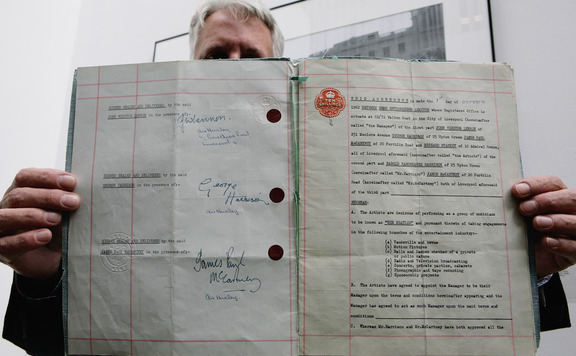 SIGNED SEALED AND DELIVERED by the said
JOHN WINSTON LENNON in the presence of:-
JWLennon.
SIGNED SEALED AND DELIVERED by the said
GEORGE HARRISON in the presence of:-
George
Harrison
SIGNED SEALED AND DELIVERED by the said
JAMES PAUL McCARTNEY in the presence of:-
James Paul
McCartney
THIS AGREEMENT is made the 1st day of
1962 BETWEEN
whose Registered Office is
situate at in the City of Liverpool (hereinafter
called "the Manager") of the first part JOHN WINSTON LENNON of
251 Menlove Avenue GEORGE HARRISON of 25 Upton Green JAMES PAUL
McCARTNEY of 20 Forthlin Road and RICHARD STARKEY of 10 Admiral Grove,
all of Liverpool aforesaid (hereinafter called "the Artists") of the
second part and HAROLD HARGREAVES HARRISON of 25 Upton Green
(hereinafter called "Mr.Harrison") and JAMES McCARTNEY of 20 Forthlin
Road (hereinafter called "Mr.McCartney") both of Liverpool aforesaid
of the third part
WHEREAS:
A. The Artists are desirous of performing as a group of musicians
to be known as "THE BEATLES" and pursuant thereto of taking engagements
in the following branches of the entertainment industry:-
(a) Vaudeville and Revue
(b) Motion Pictures
(c) Balls and Dances whether of a private
or public nature
(d) Radio and Television broadcasting
(e) Concerts, private parties, cabarets
(f) Phonographic and tape recording
(g) Sponsorship projects
B. The Artists have agreed to appoint the Manager to be their
Manager upon the terms and conditions hereinafter appearing and the
Manager has agreed to act as such Manager upon the said terms and
conditions
C. Whereas Mr.Harrison and Mr.McCartney have both approved all the